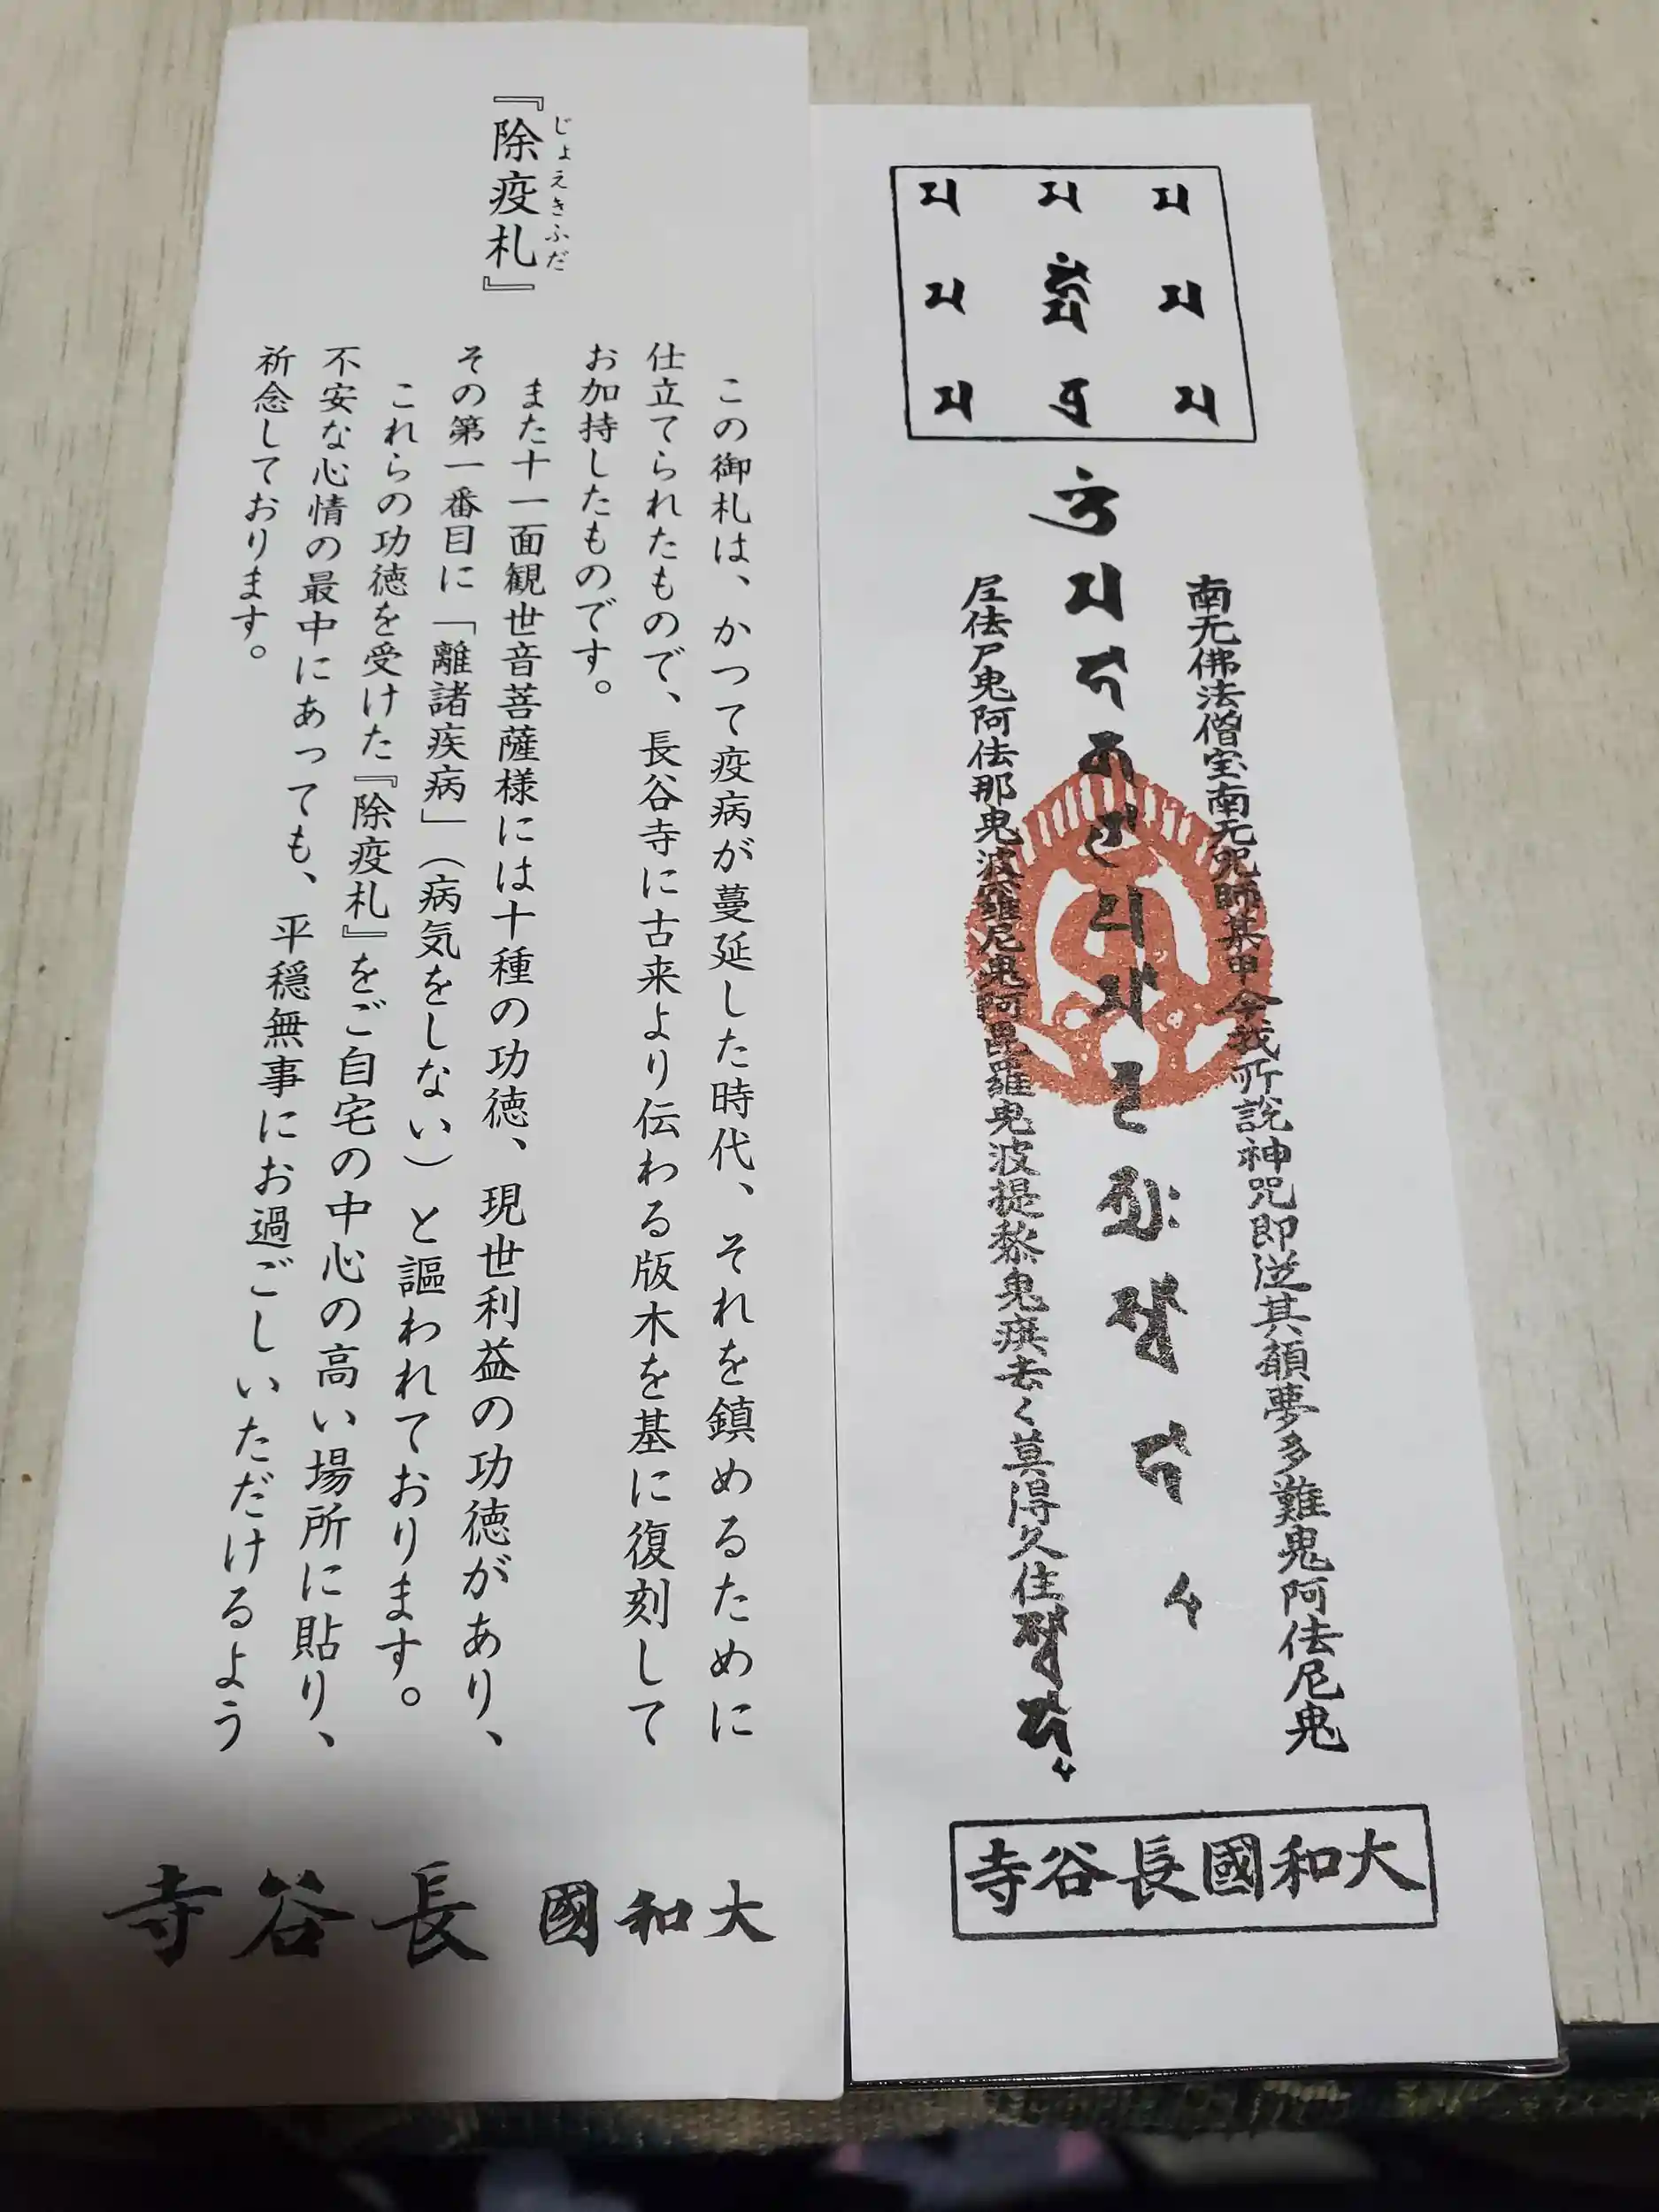 『除疫札』
じょえきふだ
この御札は、かつて疫病が蔓延した時代、それを鎮めるために
仕立てられたもので、長谷寺に古来より伝わる版木を基に復刻して
お加持したものです。
また十一面観世音菩薩様には十種の功徳、現世利益の功徳があり、
その第一番目に「離諸疾病」（病気をしない）と謳われております。
これらの功徳を受けた『除疫札』をご自宅の中心の高い場所に貼り、
不安な心情の最中にあっても、平穏無事にお過ごしいただけるよう
祈念しております。
大和國 長谷寺
南无佛法僧宝南无咒師某甲今我所説神咒即従其願夢多難鬼阿佉尼鬼
尼佉尸鬼阿佉那鬼波羅尼鬼阿毘羅鬼波提黎鬼疾去く莫得久住
大和國長谷寺